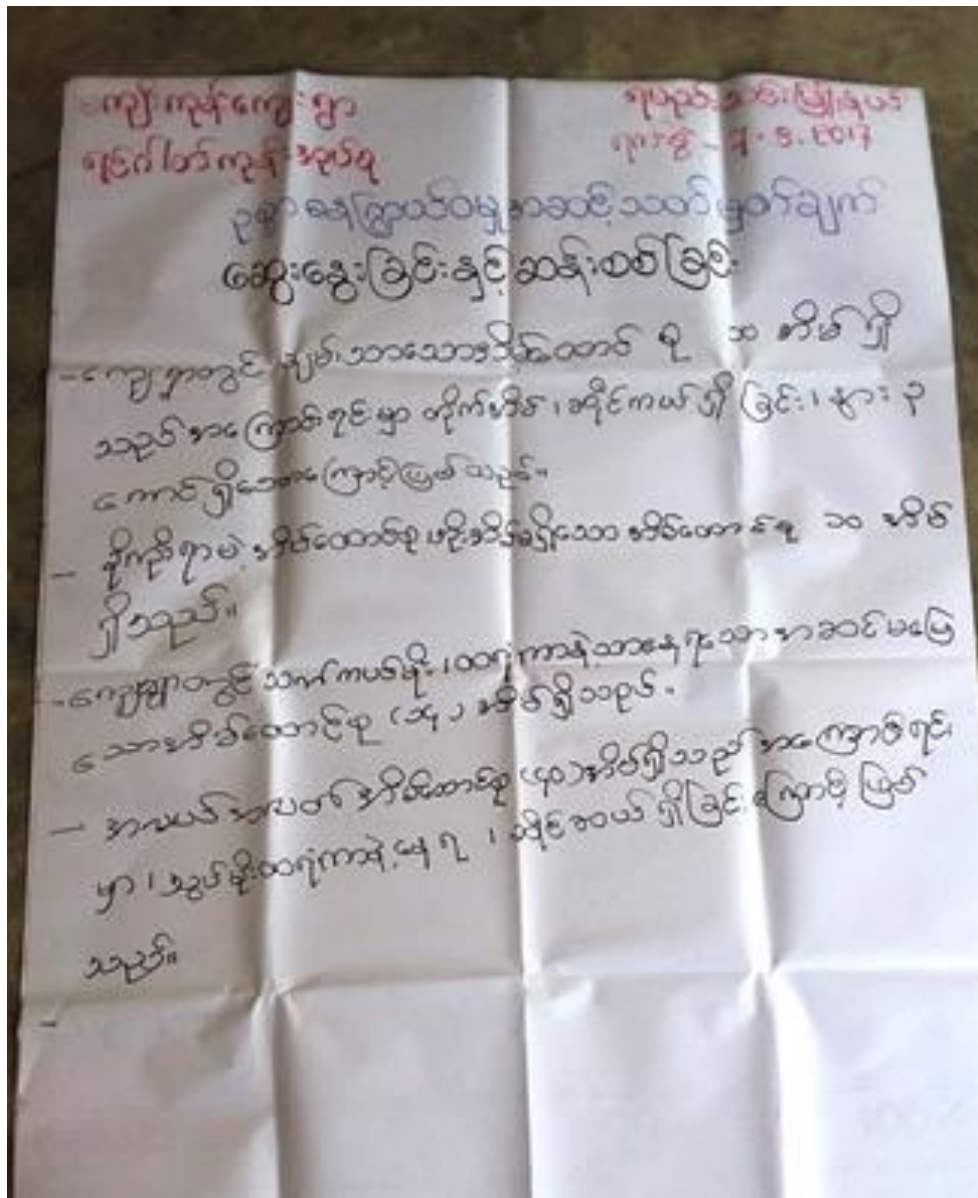 ကျိုးကုန်းကျေးရွာ
ရေပြည်သစ်မြို့နယ်
ရက်စွဲ - ၃.၁.၂၀၁၇
ဥစ္စာဓနကြွယ်ဝမှုအဆင့်သတ်မှတ်ချက်
ဆွေးနွေးခြင်းနှင့်ဆန်းစစ်ခြင်း
-ကျေးရွာတွင် ချမ်းသာသောအိမ်ထောင်စု ၁၁ အိမ်ရှိ
သည်အကြောင်းရင်းမှာ တိုက်အိမ်၊ဆိုင်ကယ်ရှိခြင်း၊နွား ၃
ကောင်ရှိသောကြောင့်ဖြစ်သည်။
- ခိုကိုးရာမဲ့အိမ်ထောင်စု၊ဖဦးအိမ်မရှိသောအိမ်ထောင်စု ၁၀ အိမ်
ရှိသည်။
-ကျေးရွာတွင် သက်ကယ်မိုး၊ထရံကာနဲ့သာနေရသောအဆင်မပြေ
သောအိမ်ထောင်စု (၁၄) အိမ်ရှိသည်။
- အလယ်အလတ်အိမ်ထောင်စု (၄၀)အိမ်ရှိသည်အကြောင်းရင်း
မှာ၊သွပ်မိုးထရံကာနဲ့နေရ ၊ ဆိုင်ကယ်ရှိခြင်းကြောင့်ဖြစ်
သည်။
-